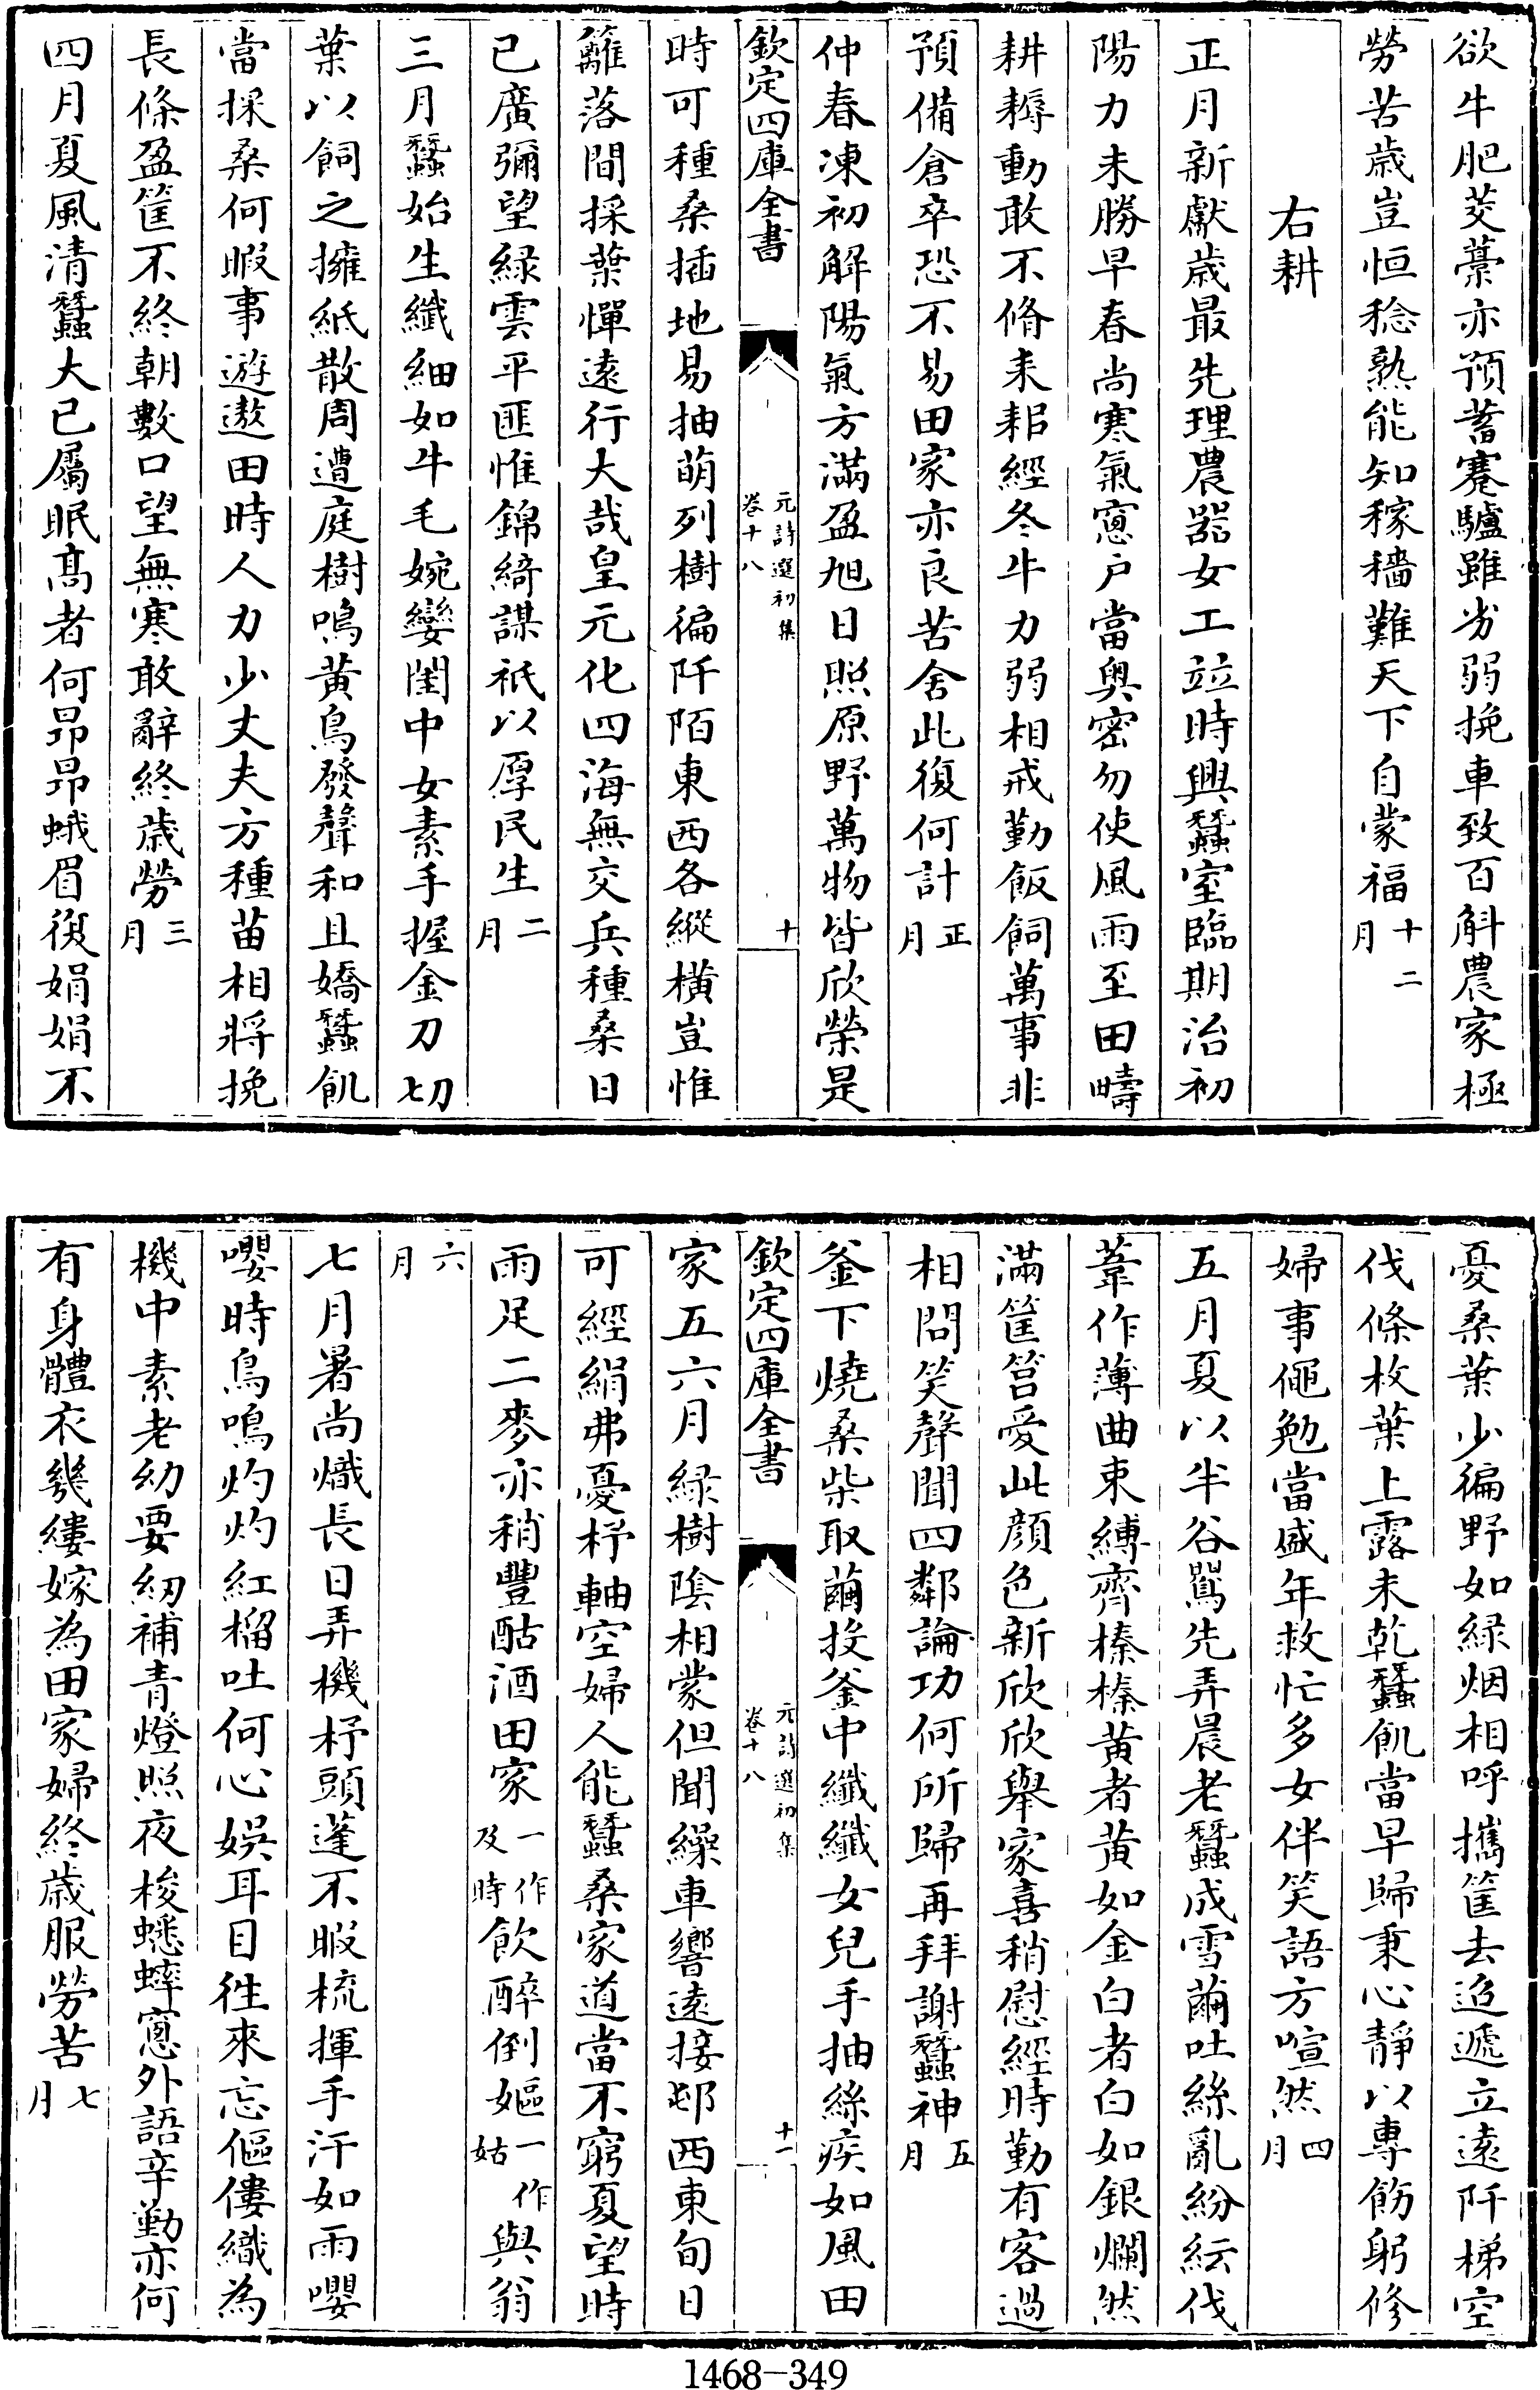 欲牛肥茭藁亦預蓄蹇驢雖劣弱挽車致百斛農家極
勞苦歲豈恒稔熟能知稼穡難天下自蒙福十二月
右耕
正月新獻歲最先理農器女工竝時興蠶室臨期治初
陽力未勝早春尚寒氣窻户當奥密勿使風雨至田疇
耕耨動敢不脩耒耜經冬牛力弱相戒勤飯飼萬事非
預備倉卒恐不易田家亦良苦舍此復何計正月
仲春凍初解陽氣方滿盈旭日照原野萬物皆欣榮是
欽定四庫全書 元詩選初集 卷十八 十
時可種桑插地易抽萌列樹徧阡陌東西各縱横豈惟
籬落間採葉憚遠行大哉皇元化四海無交兵種桑日
已廣彌望緑雲平匪惟錦綺謀祇以厚民生二月
三月蠶始生纖細如牛毛婉孌閨中女素手握金刀切
葉以飼之擁紙散周遭庭樹鳴黄鳥發聲和且嬌蠶飢
當採桑何暇事遊遨田時人力少丈夫方種苗相將挽
長條盈筐不終朝數口望無寒敢辭終歲勞三月
四月夏風清蠶大已屬眠髙者何昻昻蛾眉復娟娟不
憂桑葉少徧野如緑烟相呼攜筐去迢遞立遠阡梯空
伐條枚葉上露未乾蠶飢當早歸秉心靜以專飭躬修
婦事僶勉當盛年救忙多女伴笑語方喧然四月
五月夏以半谷鶯先弄晨老蠶成雪繭吐絲亂紛紜伐
葦作薄曲束縛齊榛榛黄者黄如金白者白如銀爛然
滿筐筥愛此顔色新欣欣舉家喜稍慰經時勤有客過
相問笑聲聞四鄰論功何所歸再拜謝蠶神五月
釜下燒桑柴取繭投釜中纖纖女兒手抽絲疾如風田
欽定四庫全書 元詩選初集 卷十八 十一
家五六月緑樹隂相蒙但聞繰車響遠接邨西東旬日
可經絹弗憂杼軸空婦人能蠶桑家道當不窮夏望時
雨足二麥亦稍豐酤酒田家一作及時飲醉倒嫗一作姑與翁
六月
七月暑尚熾長日弄機杼頭蓬不暇梳揮手汗如雨嚶
嚶時鳥鳴灼灼紅榴吐何心娱耳目徃來忘傴僂織為
機中素老幼要紉補青燈照夜梭蟋蟀窻外語辛勤亦何
有身體衣幾縷嫁為田家婦終歲服勞苦七月
1468-349